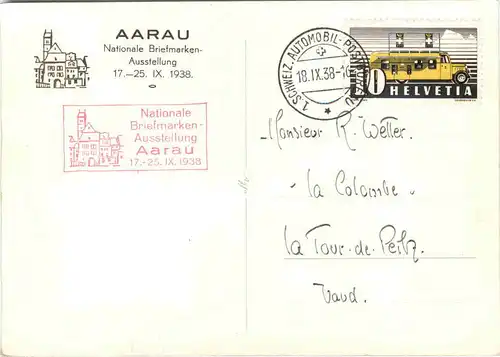 AARAU
Nationale Briefmarken-
Ausstellung
17.–25. IX. 1938.
Nationale
Briefmarken-
Ausstellung
Aarau
17.-25. IX. 1938
1. SCHWEIZ. AUTOMOBIL-POST
18.IX.38-
10
HELVETIA
Monsieur R. Wetter.
La Colombe.
La Tour-de-Peilz.
Vaud.